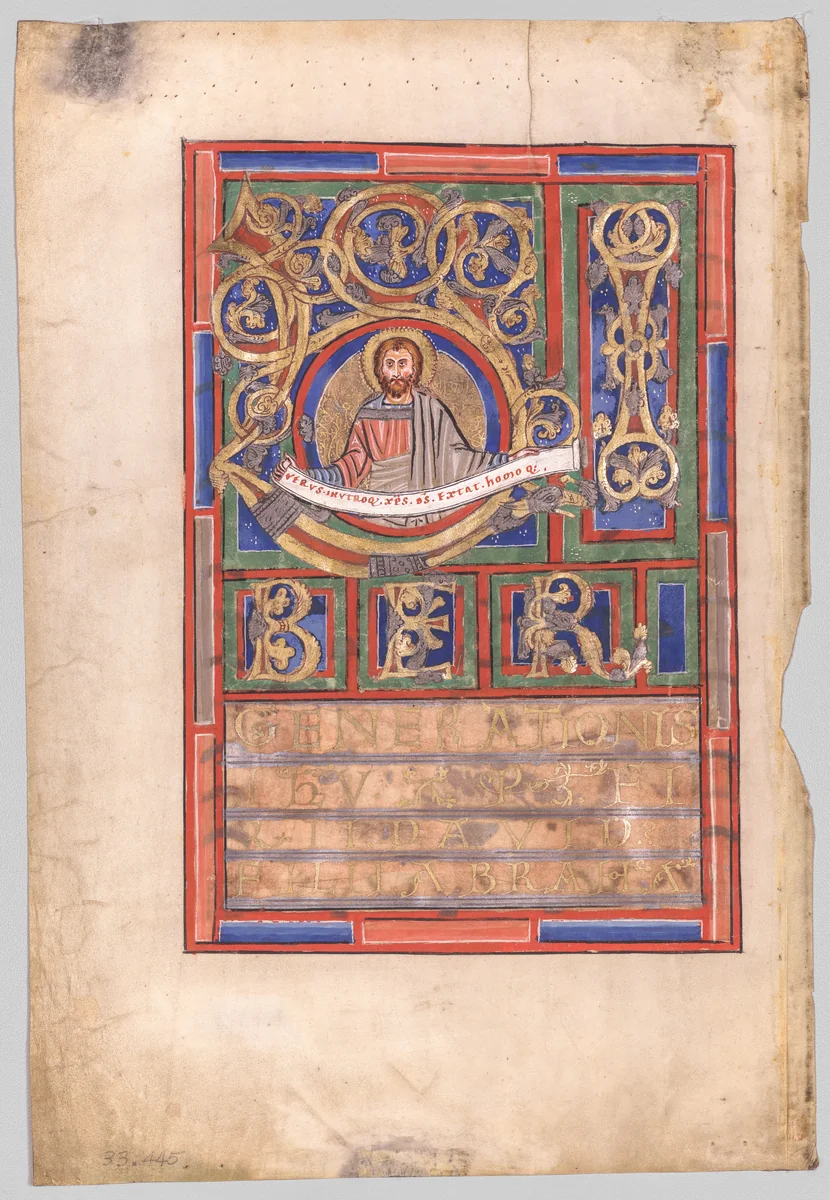 LI
VERVS·INVTROQ;·XPS·DS·EXTAT·HOMOQ;·
BER
GENERATIONIS
IHV XPI FI
LII DAVID:
FILII ABRAHA
33.445